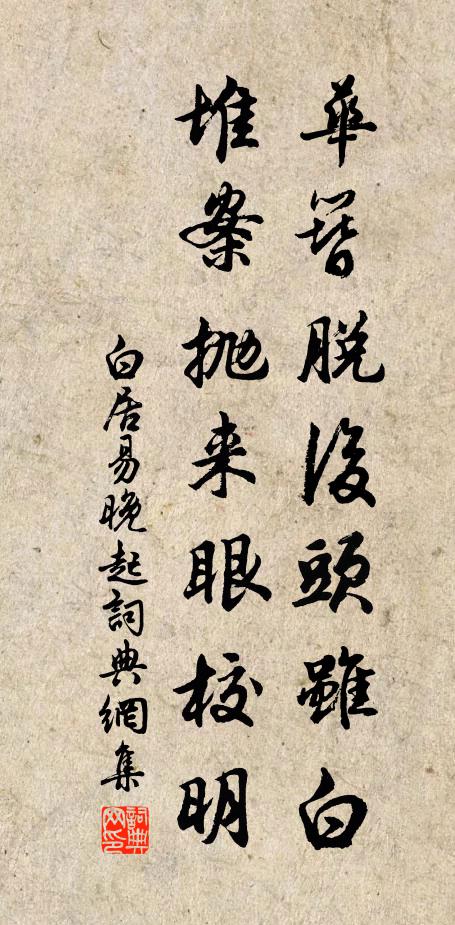 華簪脫後頭雖白
堆案拋来眼校明
白居易晚起詞典網集
詞典网印